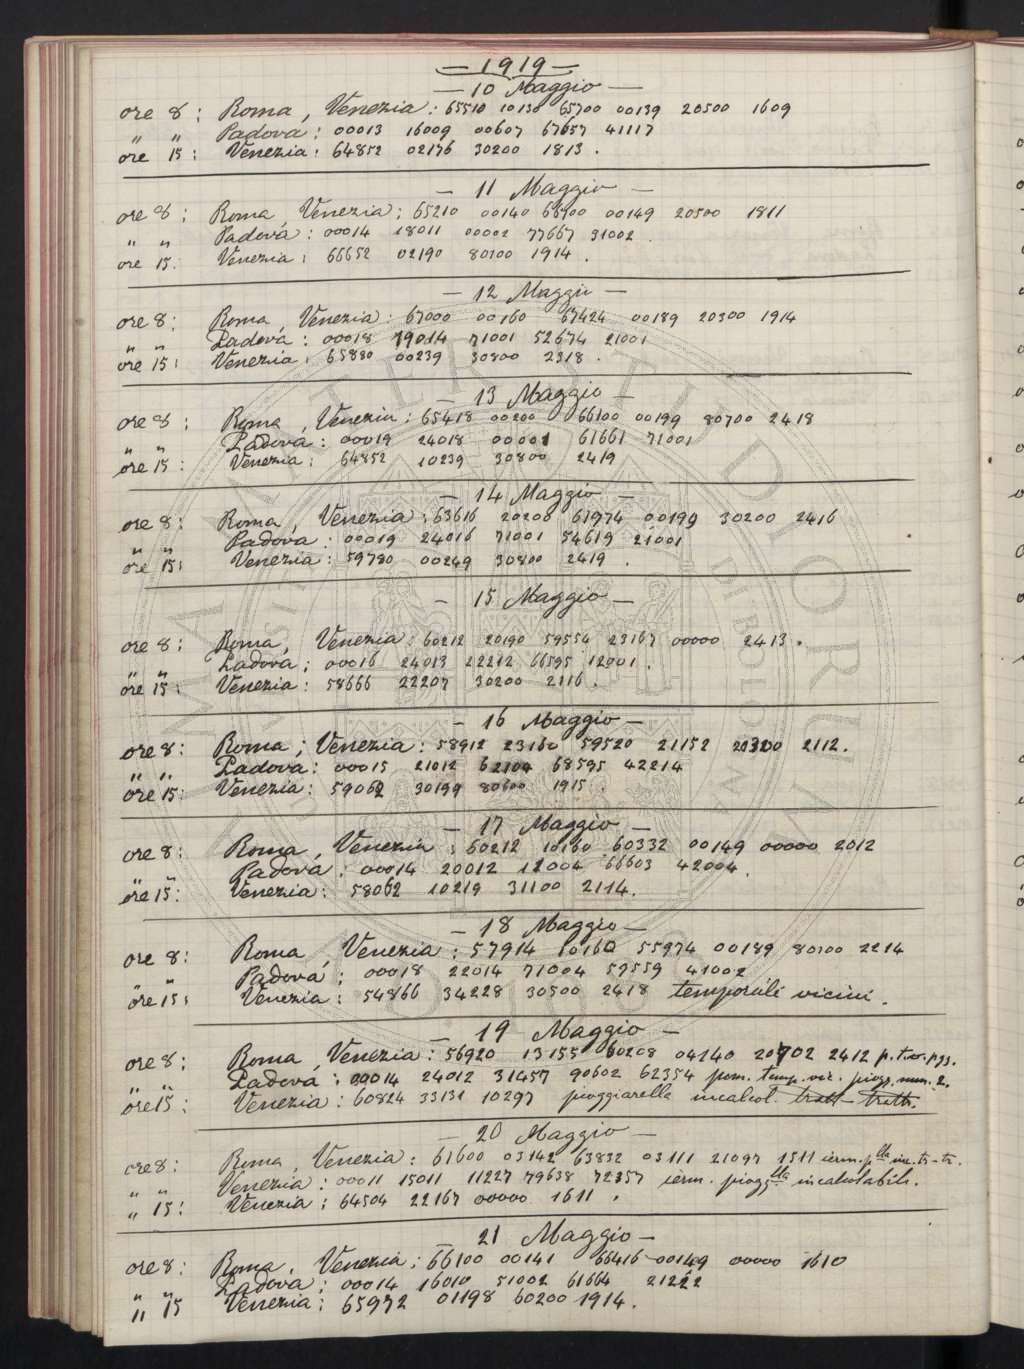 — 1919 —
— 10 Maggio —
ore 8 : Roma, Venezia : 65510 10130 65700 00139 20500 1609
" " Padova : 00013 16009 00607 67657 41117
ore 15 : Venezia : 64852 02176 30200 1813 .
— 11 Maggio —
ore 8 : Roma, Venezia : 65210 00140 00149 20500 1811
" " Padova : 00014 18011 00002 77667 31002 .
ore 15 : Venezia : 66652 02190 80100 1914 .
— 12 Maggio —
ore 8 : Roma, Venezia : 67000 00160 67424 00189 20300 1914
" " Padova : 00018 19014 71001 52674 21001
ore 15 : Venezia : 65880 00239 30800 2318 .
— 13 Maggio —
ore 8 : Roma, Venezia : 65418 00200 66100 00199 80700 2418
" " Padova : 00019 24018 00001 61661 71001
ore 15 : Venezia : 64852 10239 30800 2419
— 14 Maggio —
ore 8 : Roma, Venezia : 63616 20200 61974 00199 30200 2416
" " Padova : 00019 24016 71001 54619 21001
ore 15 : Venezia : 59780 00249 30800 2419 .
— 15 Maggio —
ore 8 : Roma, Venezia : 60212 20190 59554 23167 00000 2413 .
" " Padova : 00016 24013 22212 66595 12001 .
ore 15 : Venezia : 58666 22207 30200 2116 .
— 16 Maggio —
ore 8 : Roma ; Venezia : 58912 23160 59520 21152 20300 2112 .
" " Padova : 00015 21012 62104 68595 42214
ore 15 : Venezia : 59062 30199 80600 1915 .
— 17 Maggio —
ore 8 : Roma, Venezia : 60212 10160 60332 00149 00000 2012
" " Padova : 00014 20012 12004 66603 42004 .
ore 15 : Venezia : 58062 10219 31100 2114 .
— 18 Maggio —
ore 8 : Roma, Venezia : 57914 10160 55974 00189 80100 2214
" Padova : 00018 22014 71004 57559 41002
ore 15 : Venezia : 54866 34228 30500 2418 temporali vicini .
— 19 Maggio —
ore 8 : Roma, Venezia : 56920 13155 60208 04140 20702 2412
" " Padova : 00014 24012 31457 90602 62354 pom. temp. vic. piogg. mm. 2.
ore 15 : Venezia : 60824 33131 10297 pioggiarella incalcol.
— 20 Maggio —
ore 8 : Roma, Venezia : 61600 03142 63832 03111 21097 1511
" " Venezia : 00011 15011 11227 79638 72357 ierm. piogg.lla incalcolabili.
" 15 : Venezia : 64504 22167 00000 1611 .
— 21 Maggio —
ore 8 : Roma, Venezia : 66100 00141 66416 00149 00000 1610
" " Padova : 00014 16010 51002 61664 21222
" 15 Venezia : 65972 01198 60200 1914 .